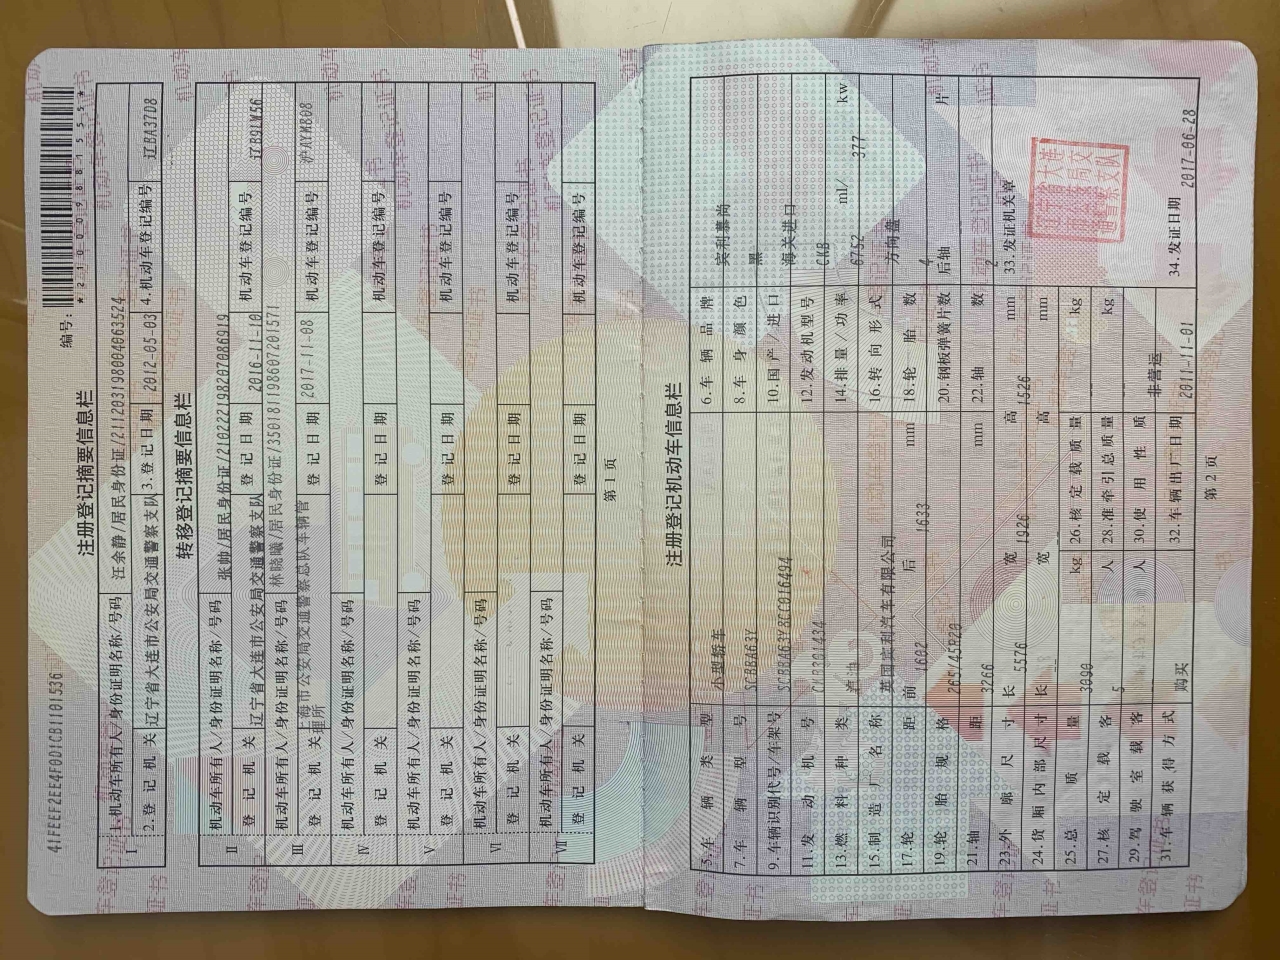 41FEEE2EE4F0D1CB1101536
编号:
*210009881555*
注册登记摘要信息栏
I 1.机动车所有人/身份证明名称/号码 汪余静/居民身份证/211203198004063524
2.登记机关 辽宁省大连市公安局交通警察支队 3.登记日期 2012-05-03 4.机动车登记编号 辽BA37D8
转移登记摘要信息栏
II 机动车所有人/身份证明名称/号码 张帅/居民身份证/210222198207086919
登记机关 辽宁省大连市公安局交通警察支队 登记日期 2016-11-10 机动车登记编号 辽B91W56
III 机动车所有人/身份证明名称/号码 林晓曦/居民身份证/350181198607201571
登记机关 上海市公安局交通警察总队车辆管理所 登记日期 2017-11-08 机动车登记编号 沪AYM808
IV 机动车所有人/身份证明名称/号码
登记机关 登记日期 机动车登记编号
V 机动车所有人/身份证明名称/号码
登记机关 登记日期 机动车登记编号
VI 机动车所有人/身份证明名称/号码
登记机关 登记日期 机动车登记编号
VII 机动车所有人/身份证明名称/号码
登记机关 登记日期 机动车登记编号
第1页
注册登记机动车信息栏
5.车辆类型 小型轿车 6.车辆品牌 宾利慕尚
7.车辆型号 SCBBA63Y 8.车身颜色 黑
9.车辆识别代号/车架号 SCBBA63Y8CC016494 10.国产/进口 海关进口
11.发动机号 CKB301434 12.发动机型号 CKB
13.燃料种类 汽油 14.排量/功率 6752 ml/ 377 kw
15.制造厂名称 英国宾利汽车有限公司 16.转向形式 方向盘
17.轮距 前 1602 后 1633 mm 18.轮胎数 4
19.轮胎规格 265/45R20 20.钢板弹簧片数 后轴 片
21.轴距 3266 mm 22.轴数 2
23.外廓尺寸 长 5576 宽 1926 高 1526 mm 33.发证机关章
24.货厢内部尺寸 长 宽 高 mm
25.总质量 3090 kg 26.核定载质量 kg
27.核定载客 5 人 28.准牵引总质量 kg
29.驾驶室载客 人 30.使用性质 非营运
31.车辆获得方式 购买 32.车辆出厂日期 2011-11-01 34.发证日期 2017-06-28
第2页